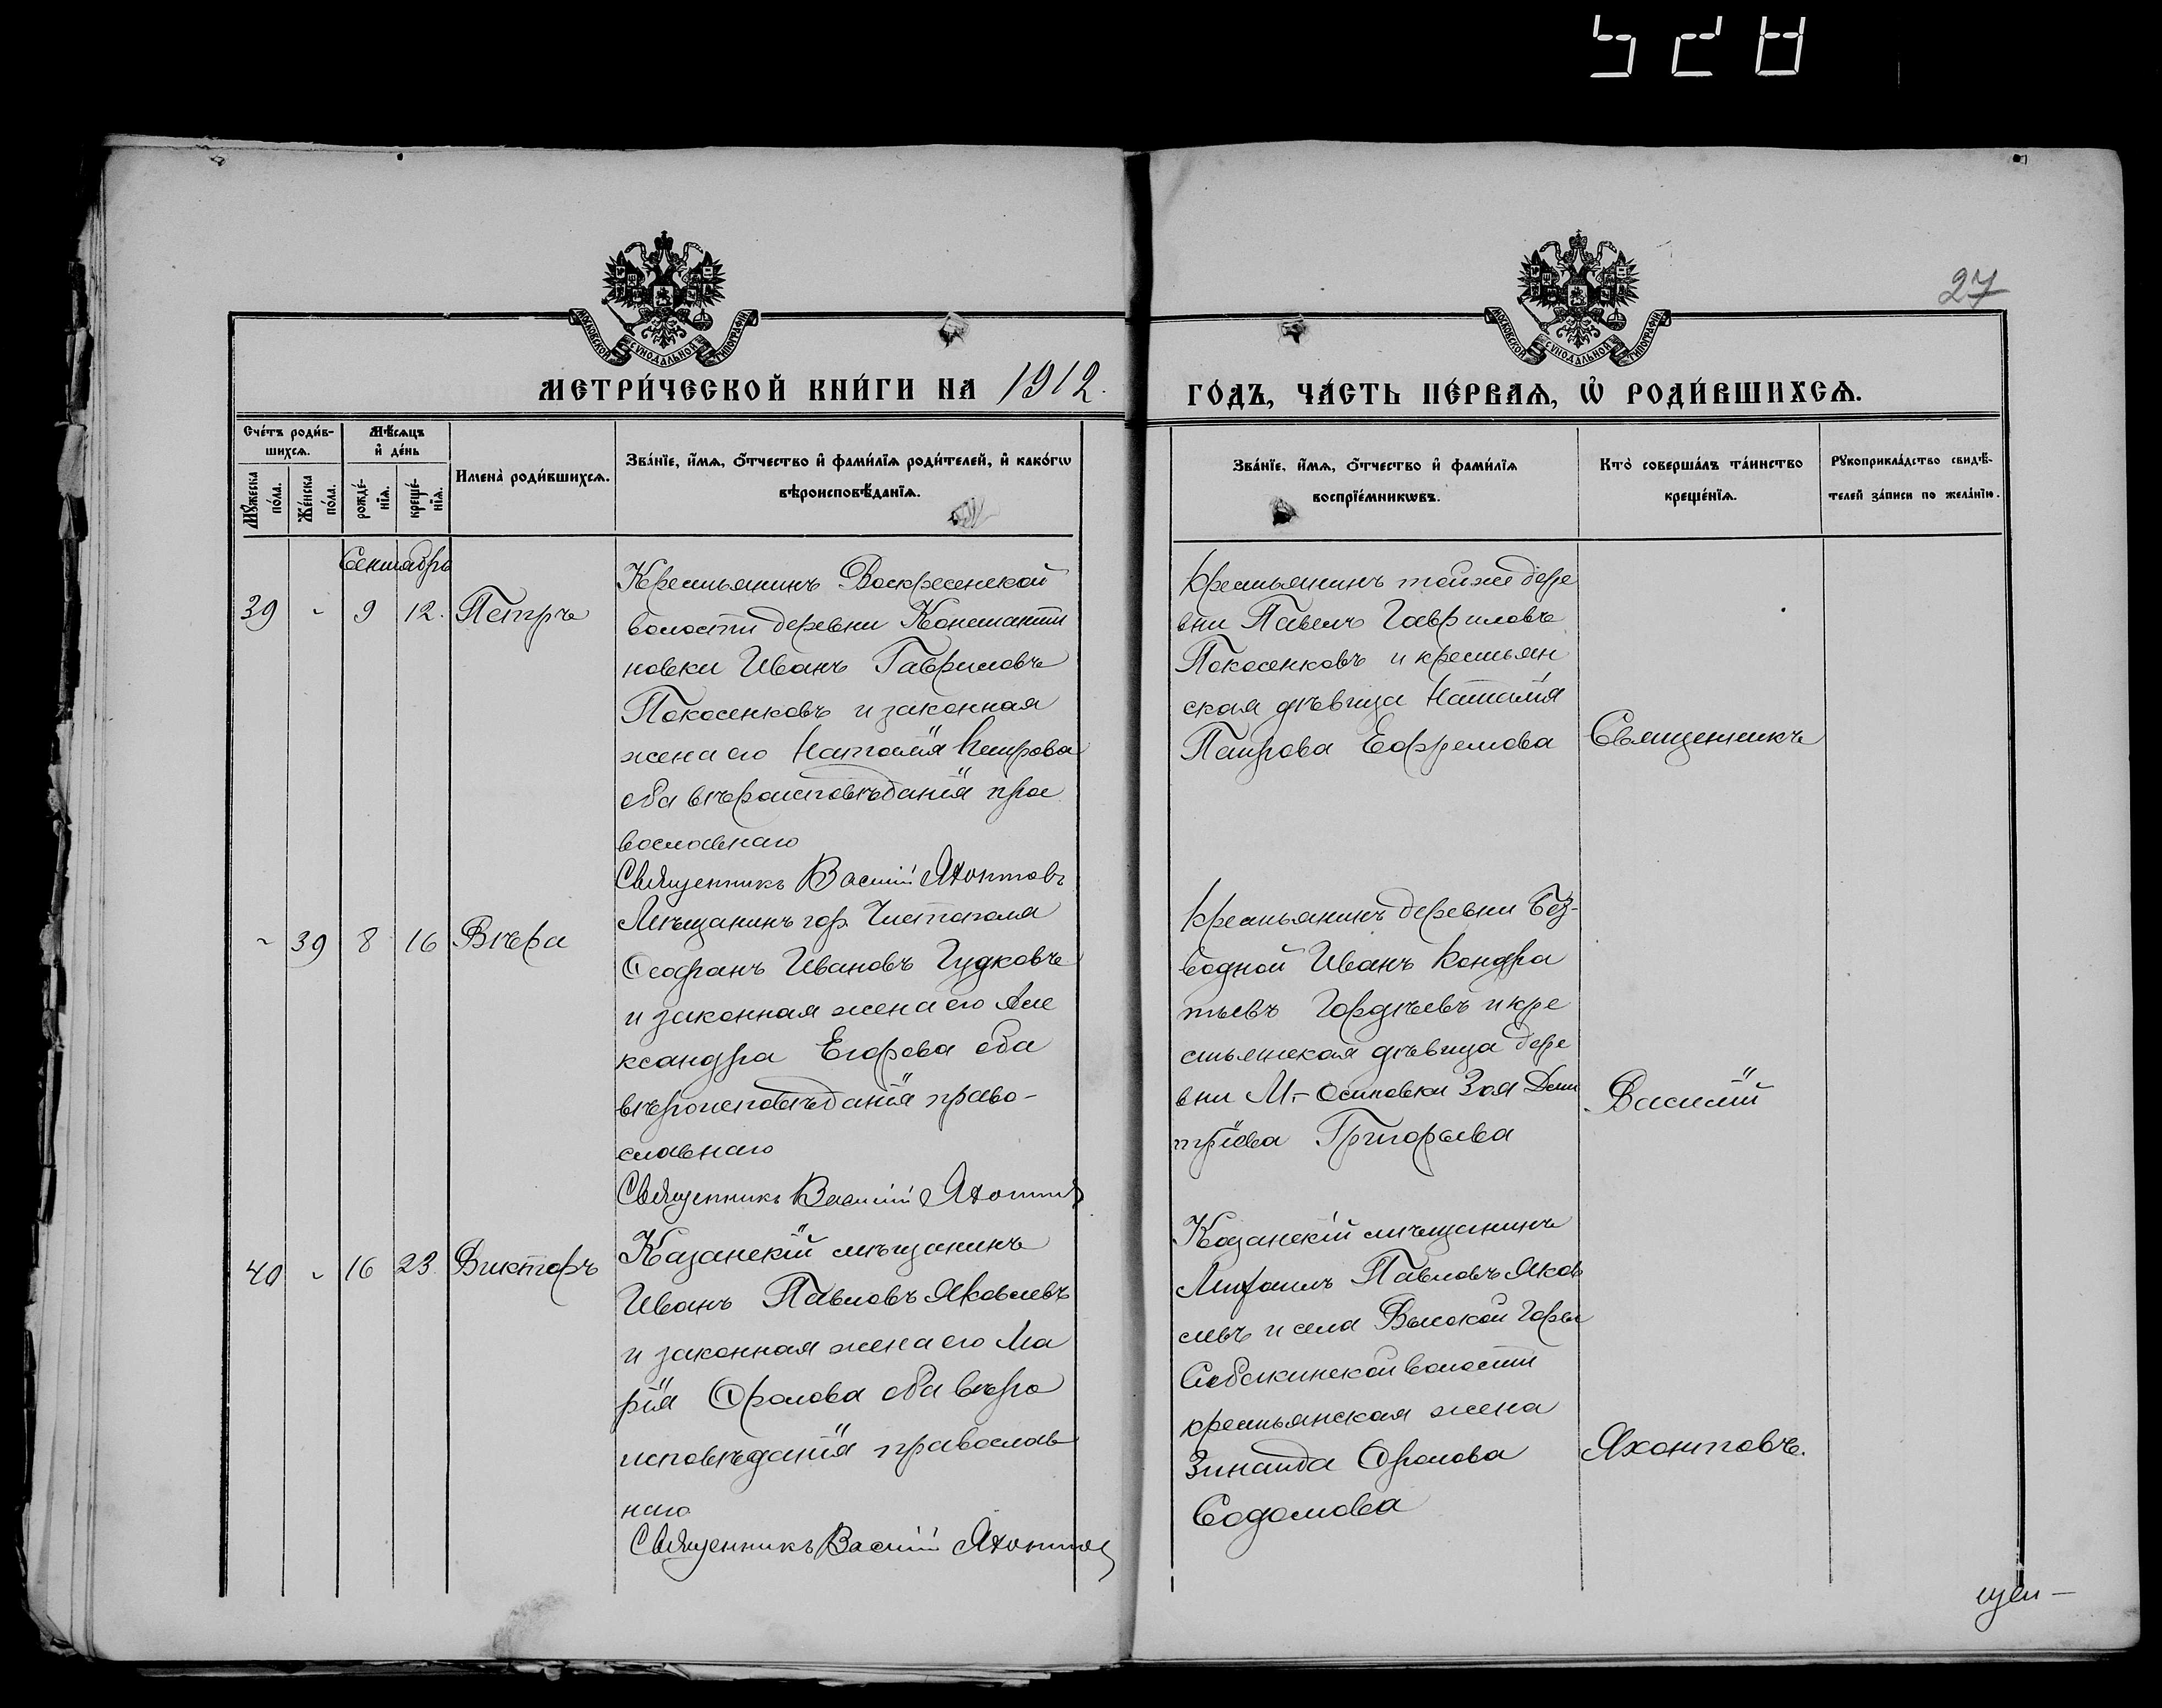 528
27
МОСКОВСКОЙ СѴНОДАЛЬНОЙ ТИПОГРАФІИ
МОСКОВСКОЙ СѴНОДАЛЬНОЙ ТИПОГРАФІИ
МЕТРИ́ЧЕСКОЙ КНИ́ГИ НА 1912.
ГО́ДЪ, ЧА́СТЬ ПЕ́РВАѦ, Ѡ҆ РОДИ́ВШИХСѦ.
Сче́тъ роди́в-
шихсѧ.
Мꙋ́жеска
по́ла.
Же́нска
по́ла.
Мѣ́сѧцъ
и҆ де́нь
рожде́-
нїѧ.
креще́-
нїѧ.
Имена̀ роди́вшихсѧ.
Зва́нїе, и҆́мѧ, ѻ҆́тчество и҆ фами́лїѧ роди́телей, и҆ како́гѡ
вѣроисповѣ́данїѧ.
Зва́нїе, и҆́мѧ, ѻ҆́тчество и҆ фами́лїѧ
воспрїе́мникѡвъ.
Кто̀ соверша́лъ та́инство
креще́нїѧ.
Рꙋкоприкла́дство свидѣ́-
телей за́писи по жела́нїю.
Сентябрь
39 - 9 12. Петръ
Крестьянинъ Воскресенской
волости деревни Константи
новки Иванъ Гавриловъ
Покосенковъ и законная
жена его Наталія Петрова
оба вѣроисповѣданія пра
вославнаго
Священникъ Василій Яхонтовъ
крестьянинъ той же дере
вни Павелъ Гавриловъ
Покосенковъ и крестьян
ская дѣвица Наталія
Петрова Ефремова
Священникъ
- 39 8 16 Вѣра
Мѣщанинъ гор. Чистополя
Ѳеофанъ Ивановъ Гудковъ
и законная жена его Але
ксандра Егорова оба
вѣроисповѣданія право-
славнаго
Священникъ Василій Яхонтовъ
крестьянинъ деревни Без-
водной Иванъ Кондра
тьевъ Гордѣевъ и кре
стьянская дѣвица дере
вни М.- Осиповки Зоя Дми
тріева Григорьева
Василій
40 - 16 23. Викторъ
Казанскій мѣщанинъ
Иванъ Павловъ Яковлевъ
и законная жена его Ма
рія Ѳролова оба вѣро
исповѣданія православ
наго
Священникъ Василій Яхонтовъ
Казанскій мѣщанинъ
Михаилъ Павловъ Яков
левъ и села Высокой Горы
волости
крестьянская жена
Зинаида Ѳролова
Содомова
Яхонтовъ.